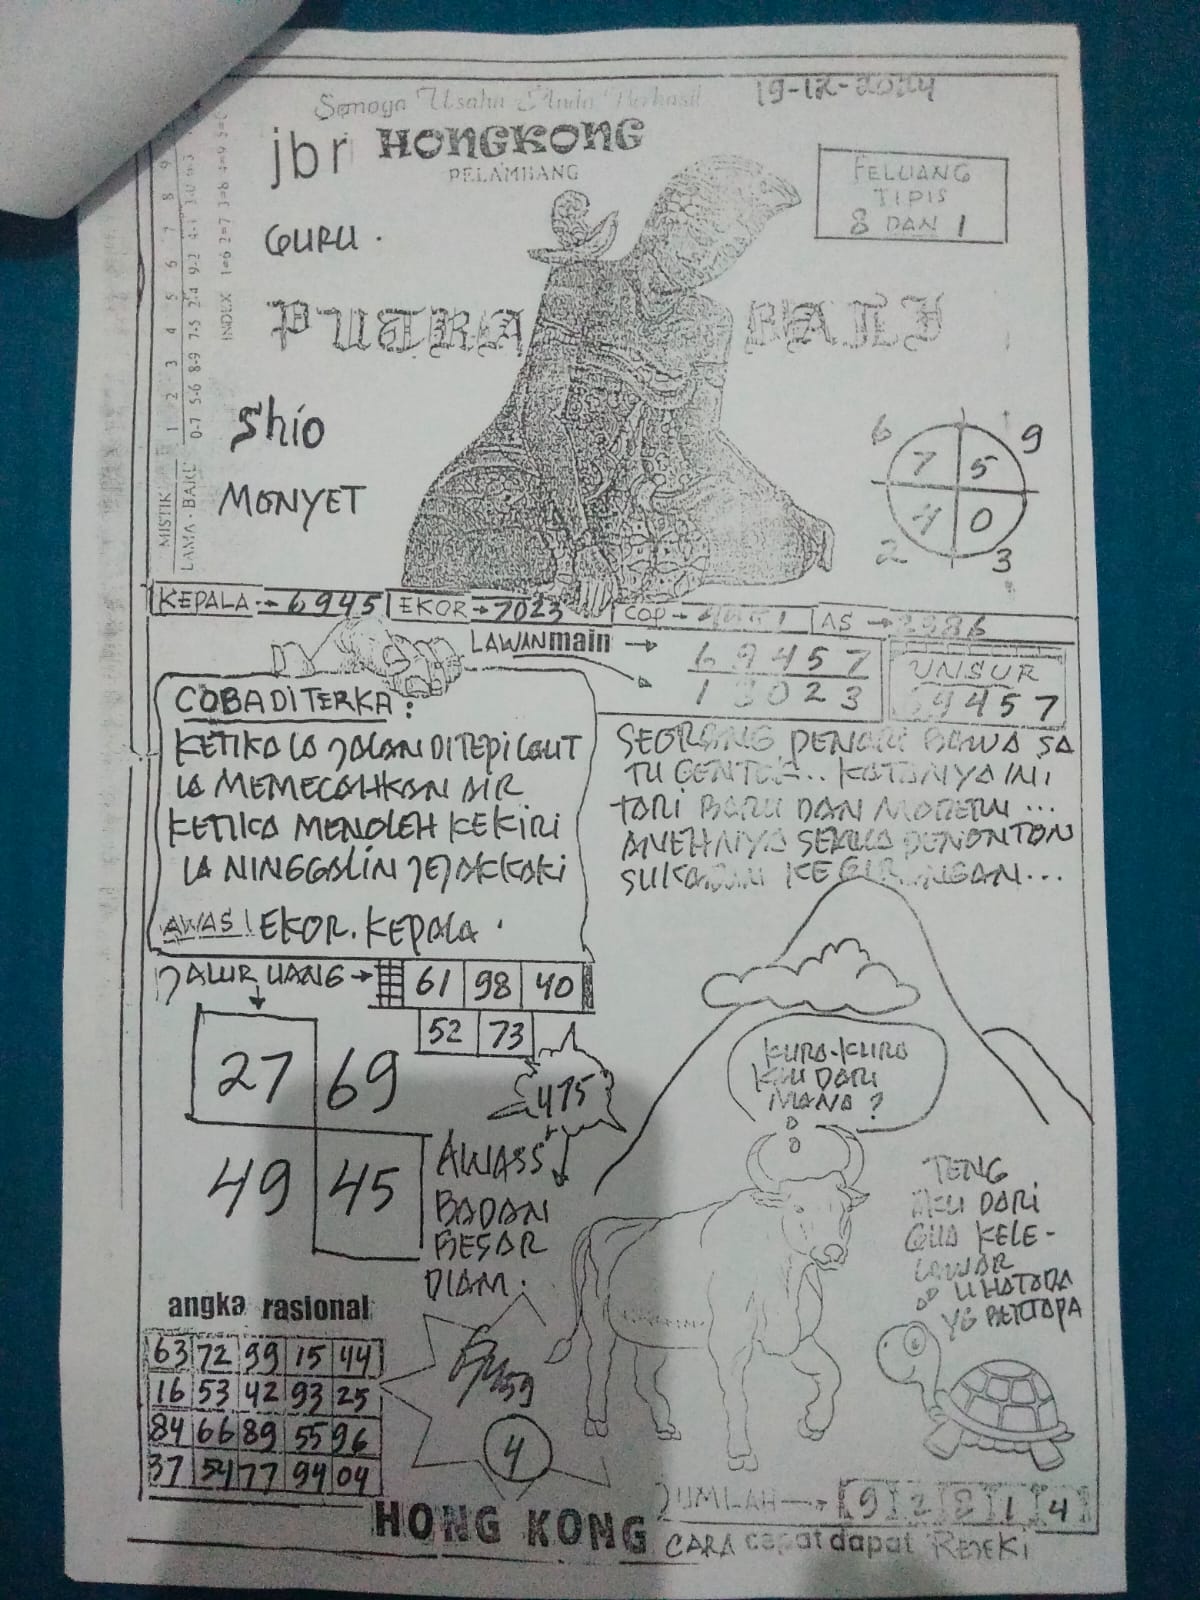 Semoga Usaha Anda Berhasil
19-12-2024
jbr HONGKONG
PELAMBANG
FELUANG
TIPIS
8 DAN 1
GURU .
PUTRA BALI
Shio
MONYET
MISTIK 1 2 3 4 5 6 7 8 9
LAMA - BARU 0-7 5-6 8-9 7-5 2-4 9-2 4-1
INDEX 1=6 2=7 3=8 4=9
6 9
7 5
4 0
2 3
KEPALA → 6945 EKOR → 7023 COP → AS →
LAWAN main → 6 9 4 5 7
1 8 0 2 3
UNSUR
69457
COBA DITERKA :
KETIKA IA JALAN DITEPI LAUT
IA MEMECAHKAN AIR
KETIKA MENOLEH KEKIRI
IA NINGGALIN JEJAK KAKI
AWAS! EKOR. KEPALA .
SEORANG PENARI BAWA SA
TU GENTONG.. KATANYA INI
TARI BARU DAN MODERN ...
ANEHNYA SEMUA PENONTON
SUKA DAN KEGIRANGAN...
JALUR UANG → 61 98 40
52 73
27 69
49 45
475
AWASS
BADAN
BESAR
DIAM.
KURA-KURA
KAU DARI
MANA ?
TENG
AKU DARI
GUA KELE-
LAWAR
YG BERTAPA
angka rasional
63 72 99 15 44
16 53 42 93 25
84 66 89 55 96
37 54 77 94 04
59
4
JUMLAH → 9 2 8 1 4
HONG KONG CARA cepat dapat REJEKI